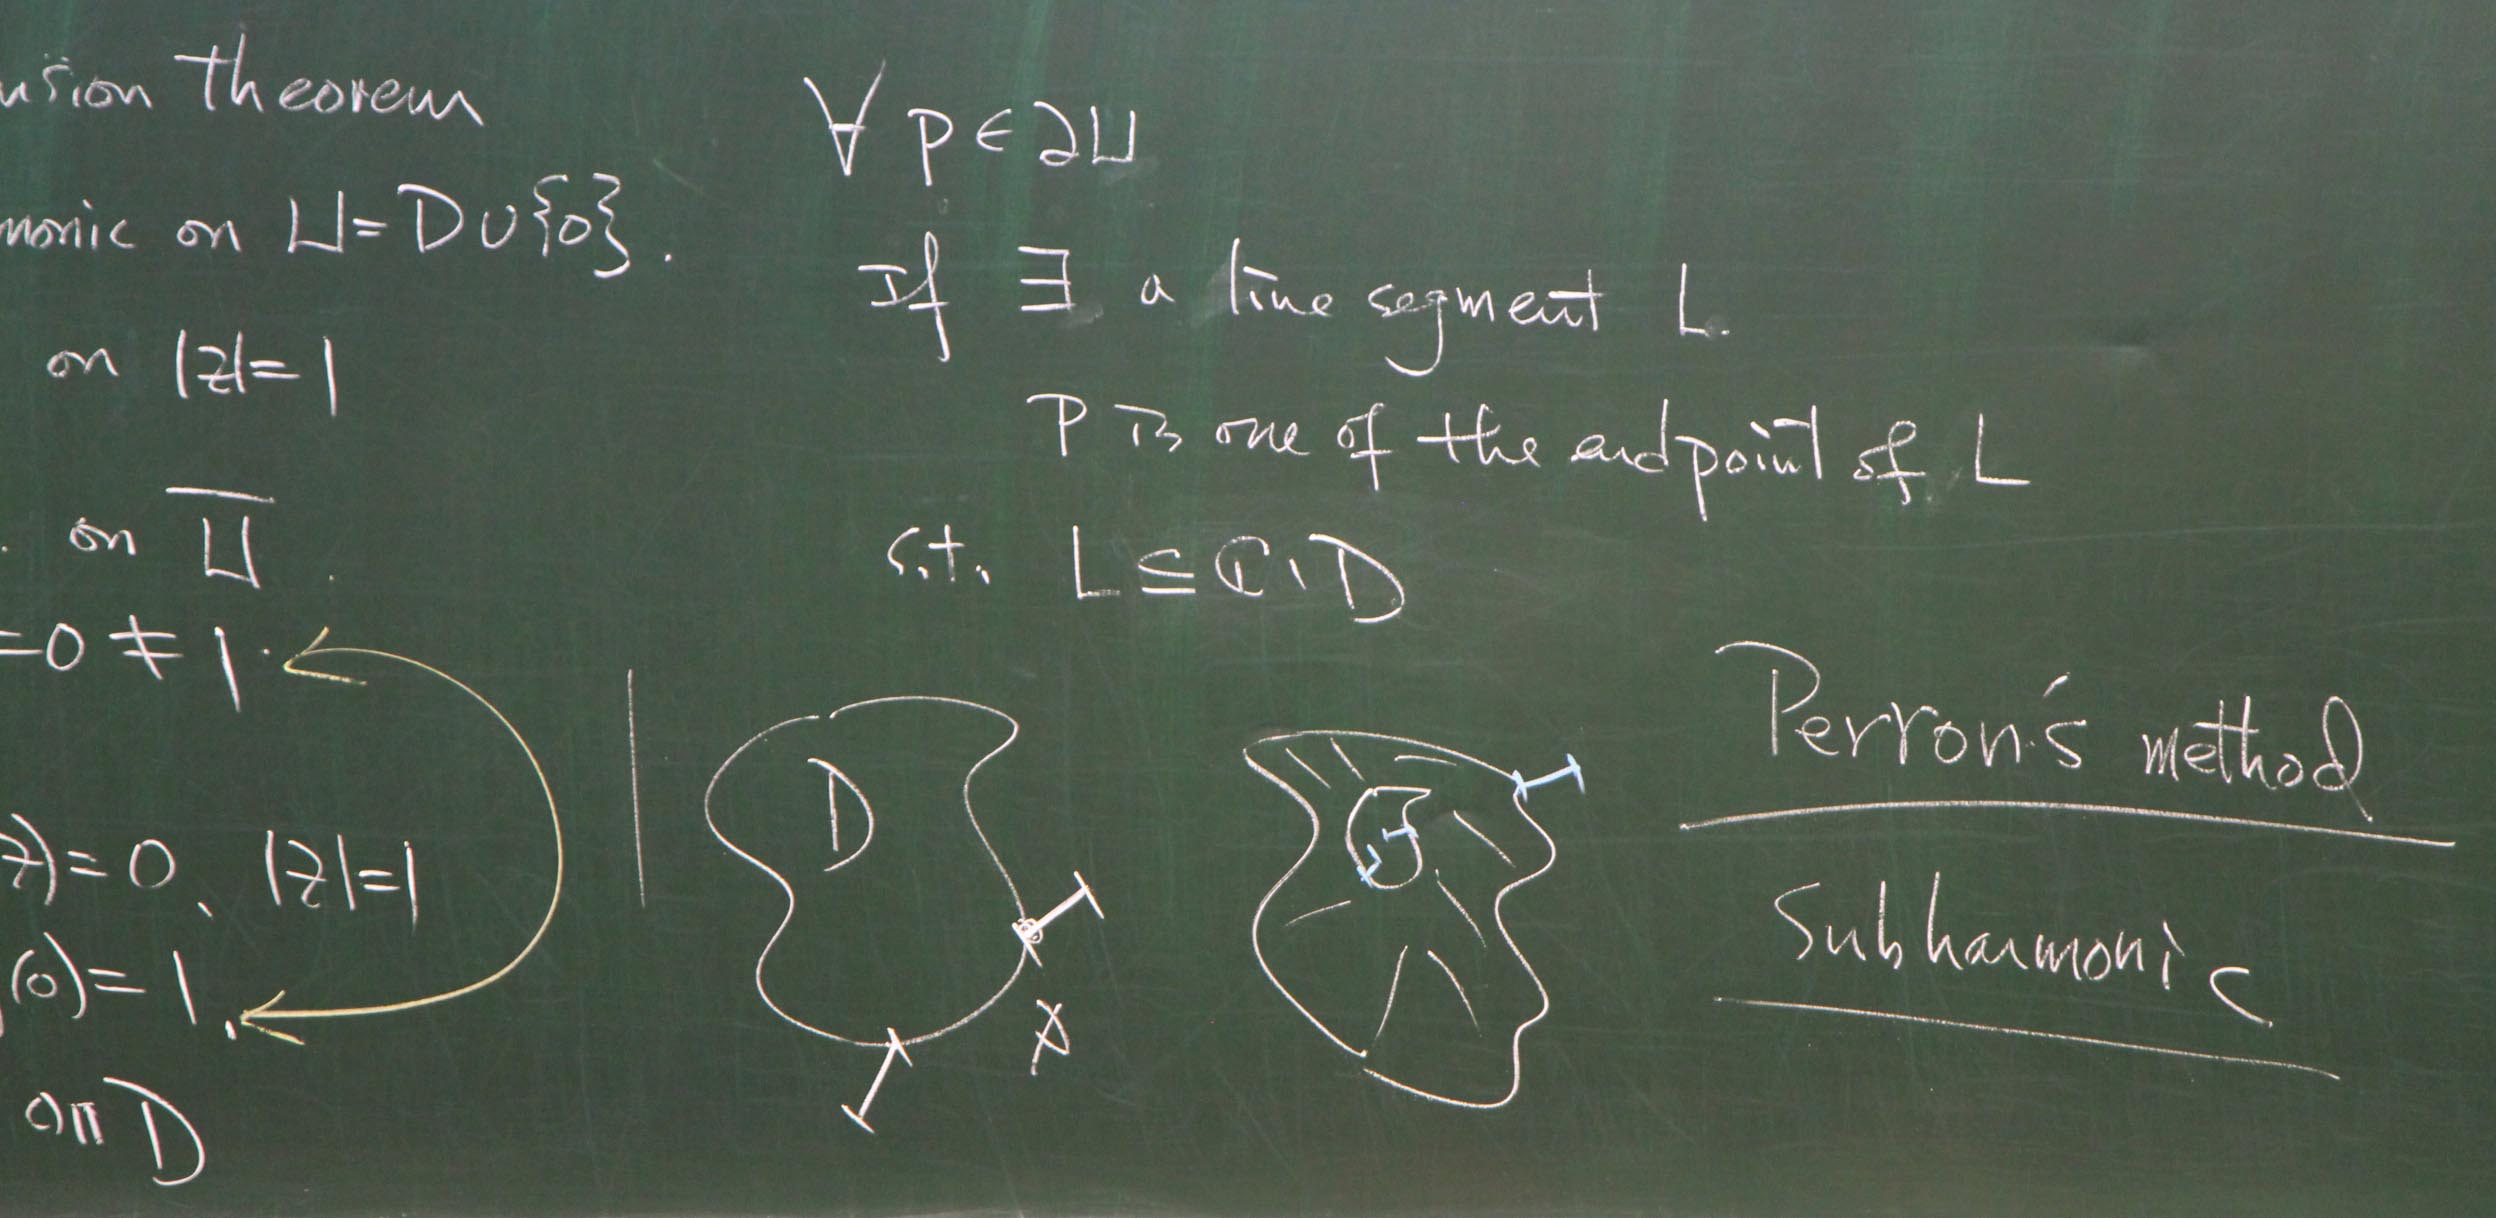 usion theorem
monic on U=D∪{0}.
on |z|=1
. on U̅.
=0≠1.
z)=0, |z|=1
(0)=1.
on D
∀ p∈∂U
If ∃ a line segment L.
P is one of the endpoint of L
s.t. L⊆ℂ\D
D
Perron's method
Subharmonic